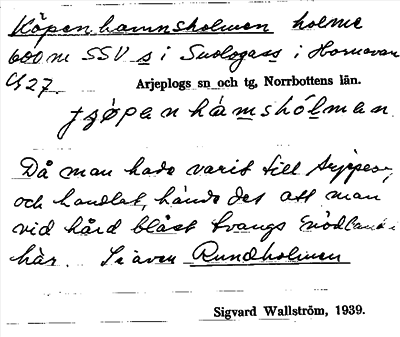 Köpenhamnsholmen holme
600 m SSV s i Suologass i Hornavan
Arjeplogs sn och tg, Norrbottens län.
Då man hade varit till Arjepeog
och handlat, hände det att man
vid hård blåst tvangs nödlanda
här. Se även Rundholmen
Sigvard Wallström, 1939.